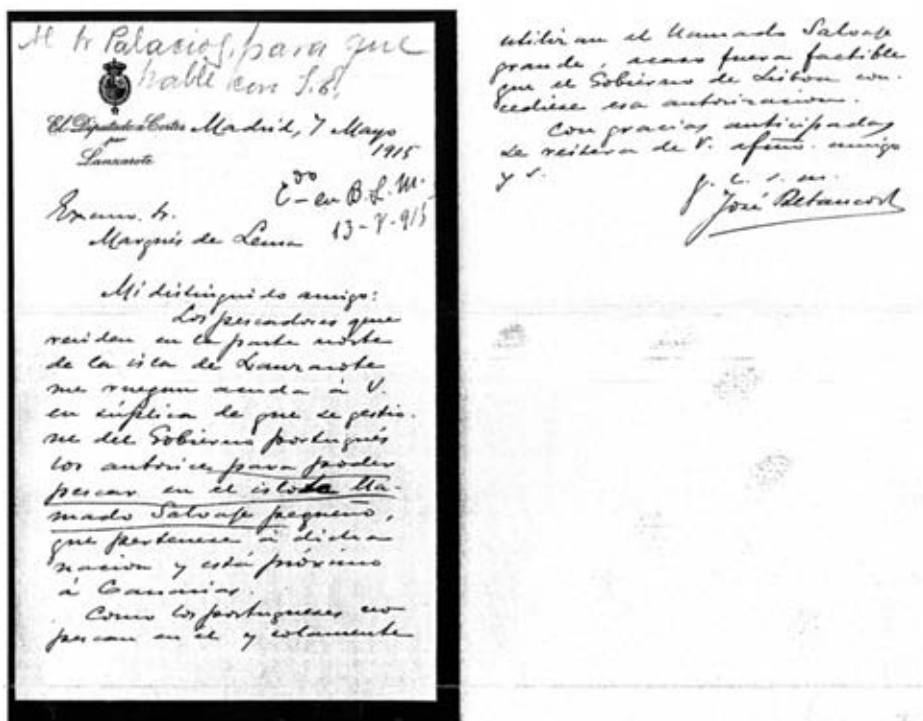 Al Sr Palacios, para que
hable con S.E.
El Diputado a Cortes
por
Lanzarote
Madrid, 7 Mayo
1915
Cdo en B.L.M.
13-V-915
Excmo. Sr.
Marqués de Lema
Mi distinguido amigo:
Los pescadores que
residen en la parte norte
de la isla de Lanzarote
me ruegan acuda á V.
en súplica de que se gestio-
ne del Gobierno portugués
los autorice para poder
pescar en el islote lla-
mado Salvaje pequeño,
que pertenece á dicha
nación y está próximo
á Canarias.
Como los portugueses no
pescan en el y solamente
utilizan el llamado Salvaje
grande, acaso fuera factible
que el Gobierno de Lisboa con-
cediese esa autorizacion.
Con gracias anticipadas
se reitera de V. afmo. amigo
y s.
q. e. s. m.
José Betancort